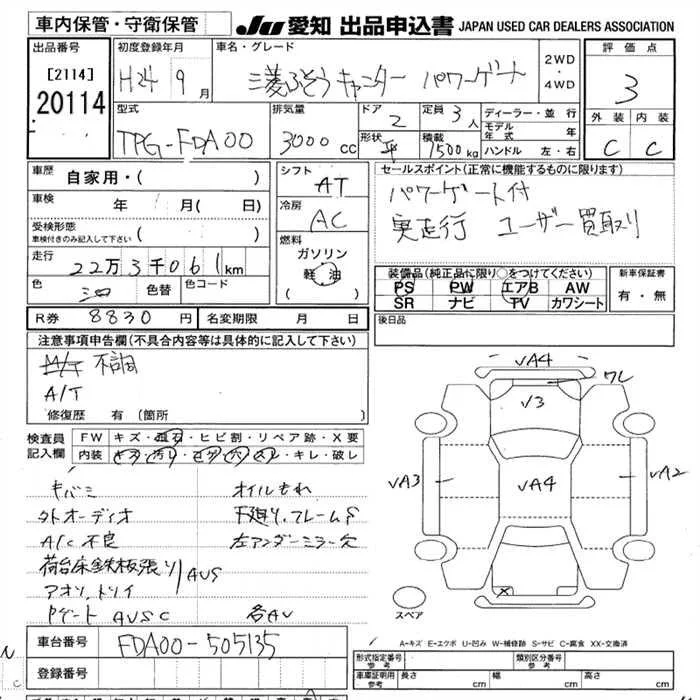 車内保管・守衛保管
JU 愛知 出品申込書 JAPAN USED CAR DEALERS ASSOCIATION
出品番号
[2114]
20114
初度登録年月
H24 9月
車名・グレード
三菱ふそう キャンター パワーゲート
2WD
・
4WD
評価点
3
外装 内装
C C
型式
TPG-FDA00
排気量
3000 cc
ドア
2
形状
平
定員
3人
積載
1500kg
ディーラー・並行
モデル年式 年
ハンドル 左・右
車歴
自家用・( )
車検 年 月(日)
受検形態
車検付きのみ記入して下さい ( )
走行
22万3千061km
色 シロ 色替 色コード
シフト
AT
冷房
AC
燃料
ガソリン
軽油
( )
セールスポイント(正常に機能するものに限ります)
パワーゲート付
実走行 ユーザー買取り
装備品(純正品に限り○をつけてください)
PS PW エアB AW
SR ナビ TV カワシート
新車保証書
有・無
R券 8830円 名変期限 月 日
後日品
注意事項申告欄(不具合内容等は具体的に記入して下さい)
M/T 不調
A/T
修復歴 有 (箇所
検査員
記入欄
FW キズ・飛石・ヒビ割・リペア跡・X要
内装 キズ・汚レ・コゲ・穴・スレ・キレ・破レ
キバミ オイルもれ
外オーディオ 下廻り,フレームS
A/C 不良 左アンダーミラー欠
荷台床鉄板張り
アオリ,トリイ AUS
Pゲート AUSC 各AU
車台番号 FDA00-505135
登録番号
VA4
ワレ
V3
VA3
VA4
VA2
X
スペア
A-キズ E-エクボ U-凹み W-補修跡 S-サビ C-腐食 XX-交換済
形式指定番号
参考
類別区分番号
参考
車庫証明用
参考
長さ cm 幅 cm 高さ cm